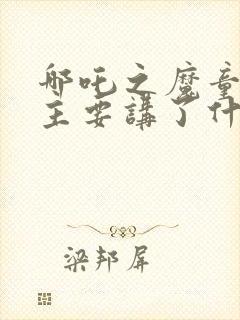 哪吒之魔童
主要講了什
梁邦屏